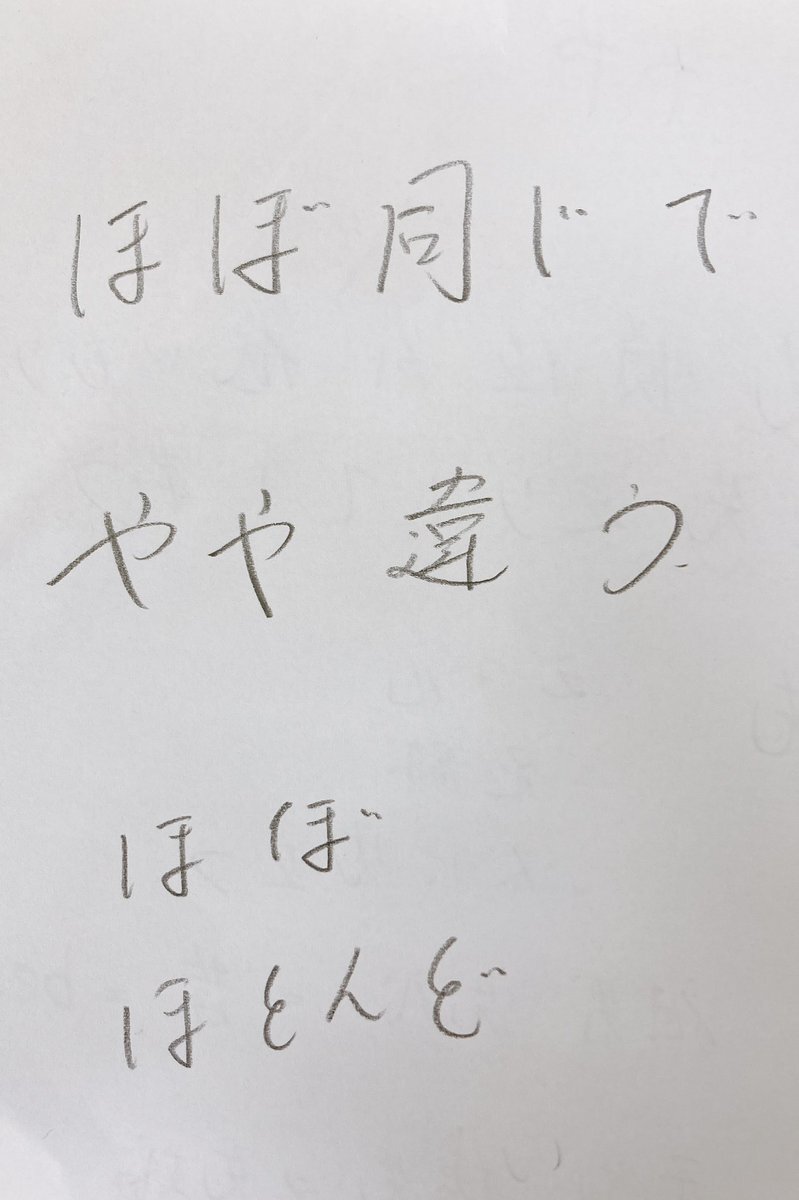 ほぼ同じで
やや違う
ほぼ
ほとんど